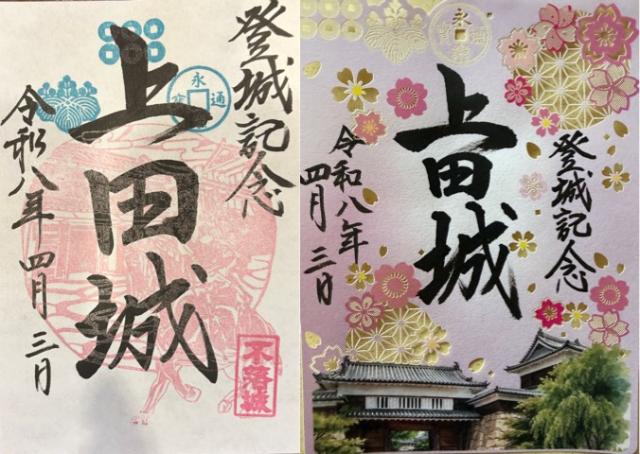 登城記念
上田城
令和八年四月三日
永
通
不落城
永
登城記念
上田城
令和八年
四月三日